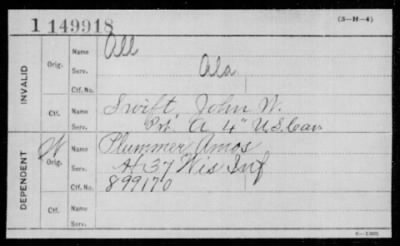 1 149918
(3-H-4)
INVALID
Orig.
Name
All
Serv.
Ala
Ctf. No.
Ctf.
Name
Swift, John W.
Serv.
Pvt. A, 4" U.S. Cav.
DEPENDENT
W
Orig.
Name
Plummer Amos
Serv.
H 37 Wis Inf
Ctf. No.
899170
Ctf.
Name
Serv.